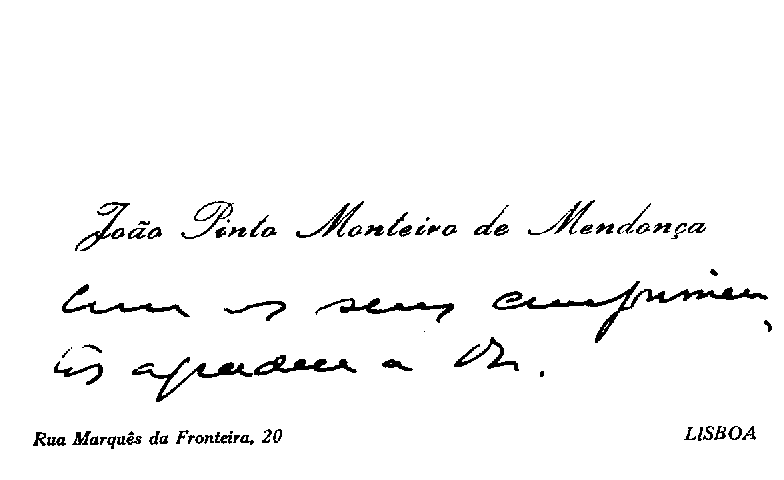 João Pinto Monteiro de Mendonça
Com os seus cumprimen
tos agradece a
Rua Marquês da Fronteira, 20
LISBOA